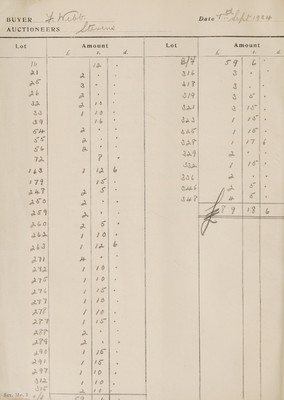 BUYER F. Webb
Date 5th Sept 1924
AUCTIONEERS Stevens
Lot Amount
£ s. d.
16 12 "
21 2 " "
25 3 " "
26 2 " "
32 2 10 "
33 1 10 "
39 16 "
54 2 " "
55 2 " "
56 2 " "
72 8 "
163 1 12 6
179 15 "
249 2 5 "
250 2 " "
259 2 " "
260 2 5 "
262 1 10 "
263 1 12 6
271 4 " "
272 1 10 "
275 1 10 "
276 1 15 "
277 1 10 "
278 1 10 "
287 1 15 "
288 2 " "
289 2 " "
290 1 15 "
291 1 15 "
297 1 10 "
312 1 10 "
315 2 10 "
59 6 "
Lot Amount
£ s. d.
B/F 59 6 "
316 3 " "
317 3 " "
319 2 5 "
321 3 15 "
323 1 15 "
325 1 15 "
328 1 17 6
329 2 " "
332 1 15 "
336 2 " "
346 2 5 "
348 4 5 "
£ 9 18 6